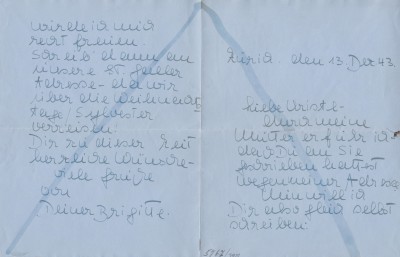 Zürich den 13. Dez 43.
Liebe Christe-
durch meine
Mutter erfuhr ich
dass Du an Sie
geschrieben hattest
wegen meiner Adresse.
Nun will ich
Dir also gleich selbst
schreiben.
würde ich mich
recht freuen.
Schreib dann an
unsere St. Galler
Adresse - da wir
über die Weihnachts
tage/Sylvester
verreisen.
Dir zu dieser Zeit
herzliche Wünsche-
viele Grüsse
von
Deiner Brigitte.